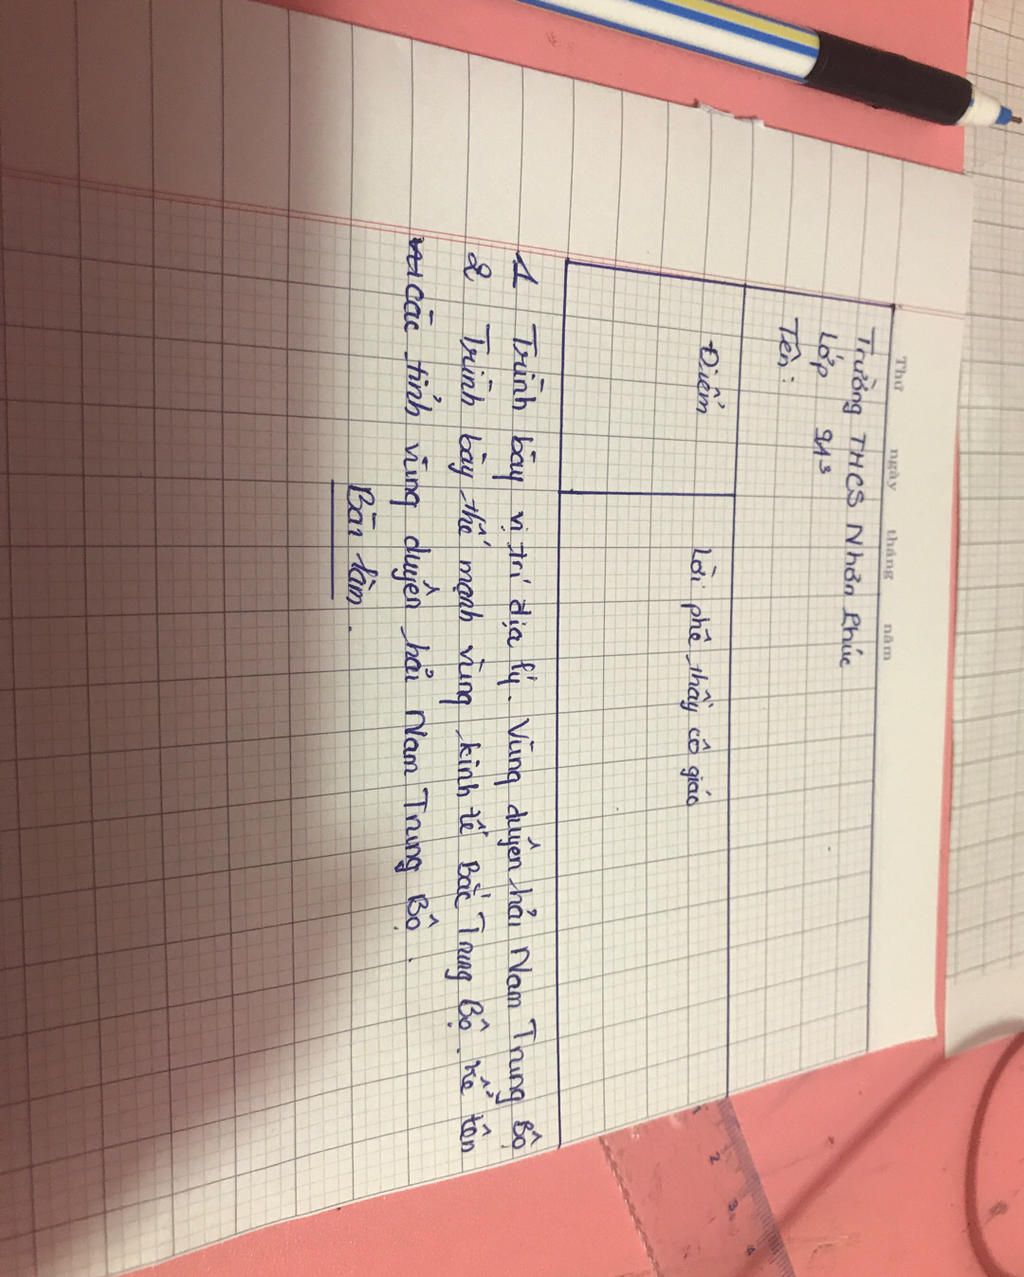 Thứ ngày tháng năm
Trường THCS Nhơn Phúc
Lớp 9A3
Tên:
Điểm
Lời phê thầy cô giáo
1 Trình bày vị trí địa lý. Vùng duyên hải Nam Trung Bộ
2 Trình bày thế mạnh vùng kinh tế Bắc Trung Bộ. kể tên
các tỉnh vùng duyên hải Nam Trung Bộ.
Bài làm.
1
2
3
4